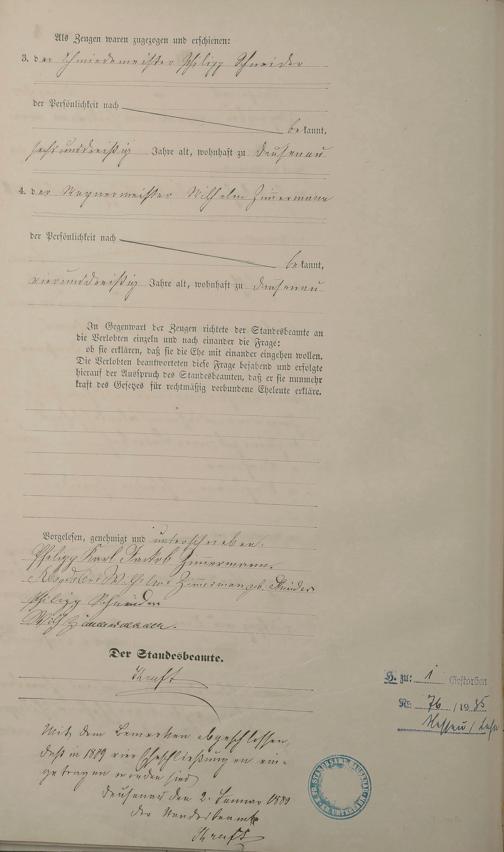 Als Zeugen waren zugezogen und erschienen:
3. der Schmiedemeister Philipp Schneider
der Persönlichkeit nach
bekannt,
sechsunddreißig Jahre alt, wohnhaft zu Dausenau
4. der Wagnermeister Wilhelm Zimmermann
der Persönlichkeit nach
bekannt,
vierunddreißig Jahre alt, wohnhaft zu Dausenau
In Gegenwart der Zeugen richtete der Standesbeamte an
die Verlobten einzeln und nach einander die Frage:
ob sie erklären, daß sie die Ehe mit einander eingehen wollen.
Die Verlobten beantworteten diese Frage bejahend und erfolgte
hierauf der Ausspruch des Standesbeamten, daß er sie nunmehr
kraft des Gesetzes für rechtmäßig verbundene Eheleute erkläre.
Vorgelesen, genehmigt und unterschrieben.
Philipp Karl Jakob Zimmermann.
Zimmermann gb.
Philipp Schneider
Wilh Zimmermann.
Der Standesbeamte.
Kraft
Mit dem Bemerken abgeschlossen,
daß in 1889 vier Eheschließungen ein-
getragen worden sind
Dausenau den 2. Januar
der Standesbeamte
Kraft
H. zu: 1 Gestorben
Nr. 76 / 19 85
Nassau / Lahn